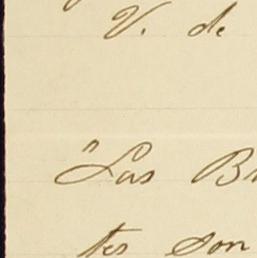 V. de
"Las Br
tes son